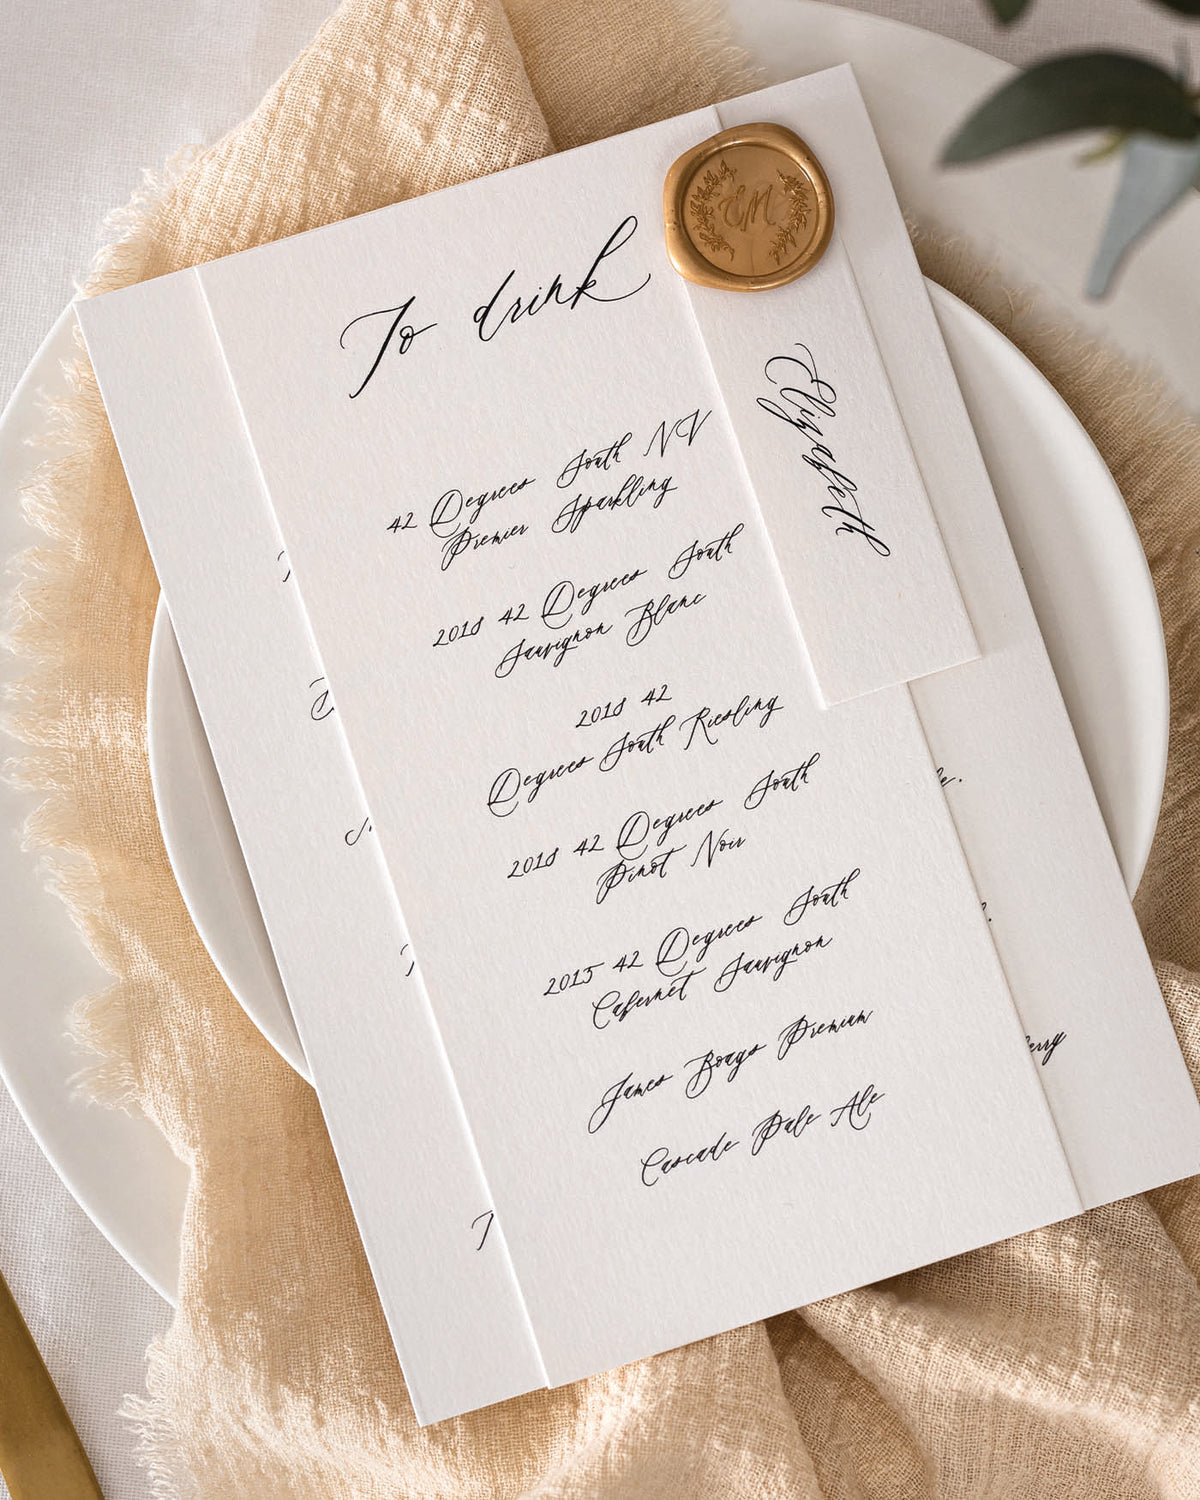 EM
To drink
Elizabeth
42 Degrees South NV
Premier Sparkling
2018 42 Degrees South
Sauvignon Blanc
2018 42
Degrees South Riesling
2018 42 Degrees South
Pinot Noir
2015 42 Degrees South
Cabernet Sauvignon
James Boags Premium
Cascade Pale Ale